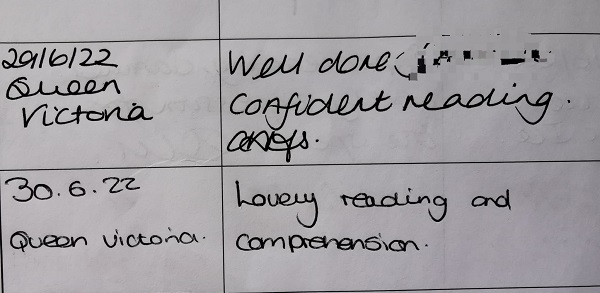 29/6/22
Queen
Victoria
Well done
Confident reading.
30.6.22
Queen victoria.
Lovely reading and
comprehension.